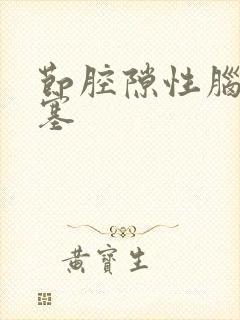 節腔隙性腦
塞
黃寶生